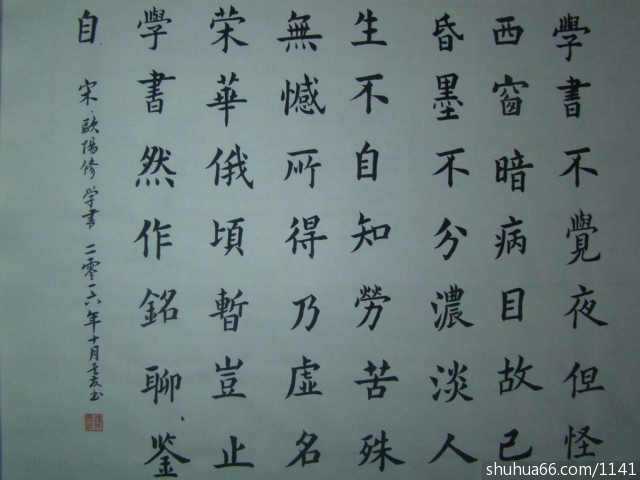 學書不覺夜但怪
西窗暗病目故已
昏墨不分濃淡人
生不自知勞苦殊
無憾所得乃虛名
荣華俄頃暫豈止
學書然作銘聊鉴
自
宋、歐陽修學書 二零一六年十月
shuhua66.com/1141